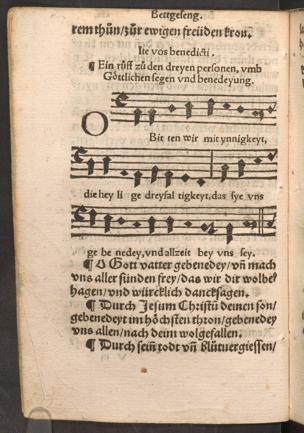 Bettgeseng.
rem thůn/zůr ewigen freüden kron.
Ite vos benedicti.
¶ Ein růff zů den dreyen personen, vmb
Göttlichen segen vnd benedeyung.
O
Bit ten wir mit ynnigkeyt,
die hey li ge dreyfal tigkeyt, das sye vns
ge be nedey, vnd allzeit bey vns sey.
¶ O Gott vatter gebenedey/vñ mach
vns aller sünden frey/das wir dir wolbe
hagen/vnd würcklich dancksagen.
¶ Durch Jesum Christũ deinen son/
gebenedeyt im höchsten thron/gebenedey
vns allen/nach deim wolgefallen.
¶ Durch sein todt vñ blůtuergiessen/